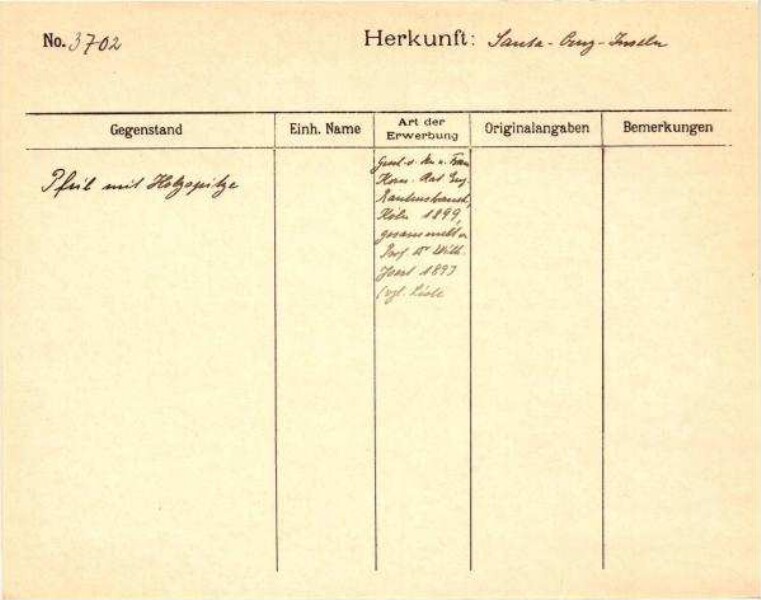 No. 3702 Herkunft: Santa-Cruz-Inseln
Gegenstand Einh. Name Art der Erwerbung Originalangaben Bemerkungen
Pfeil mit Holzspitze
Gesch. v. Hn u. Frau
Kom.-Rat Eug.
Rautenstrauch,
Köln 1899,
gesammelt v.
Prof Dr Wilh.
Joest 1897
(vgl. Liste